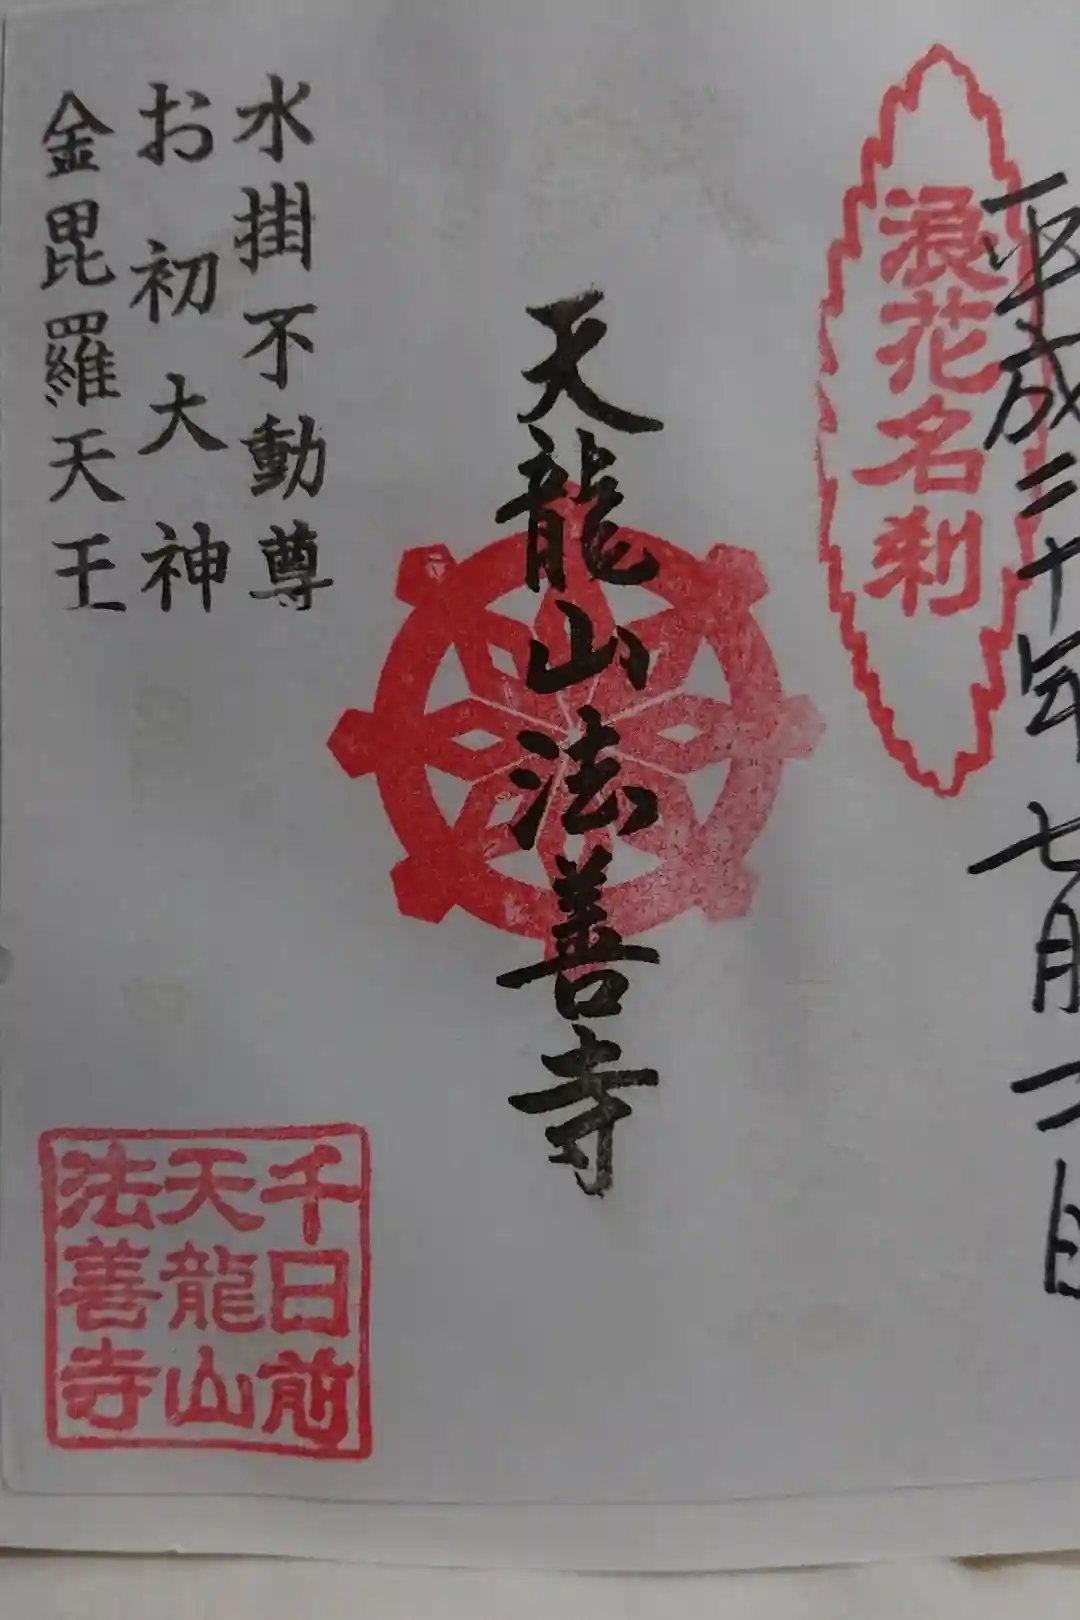 平成三十年七月一日
浪花名刹
天龍山法善寺
水掛不動尊
お初大神
金毘羅天王
千日前
天龍山
法善寺